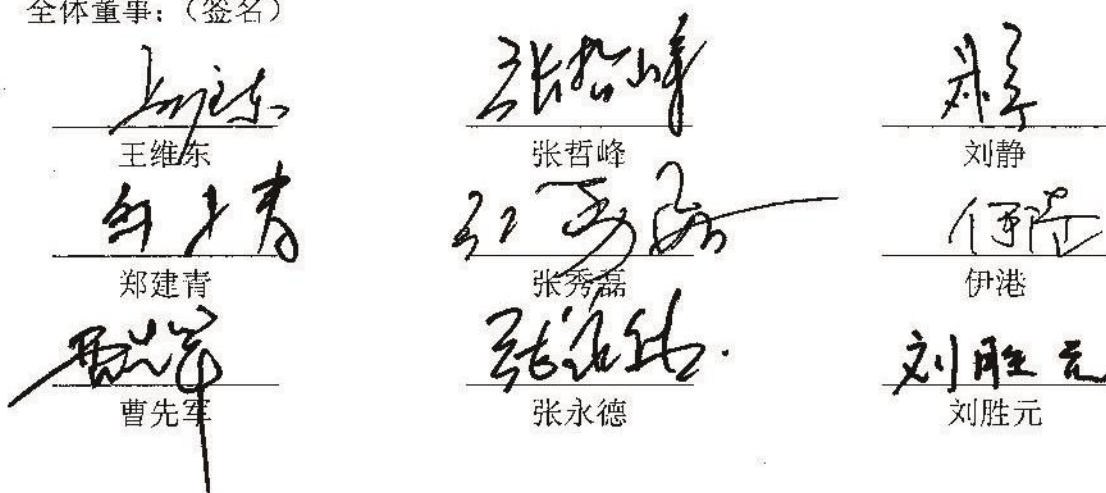 全体董事：（签名）
王维东 张哲峰 刘静
郑建青 张秀磊 伊港
曹先军 张永德 刘胜元
刘胜元